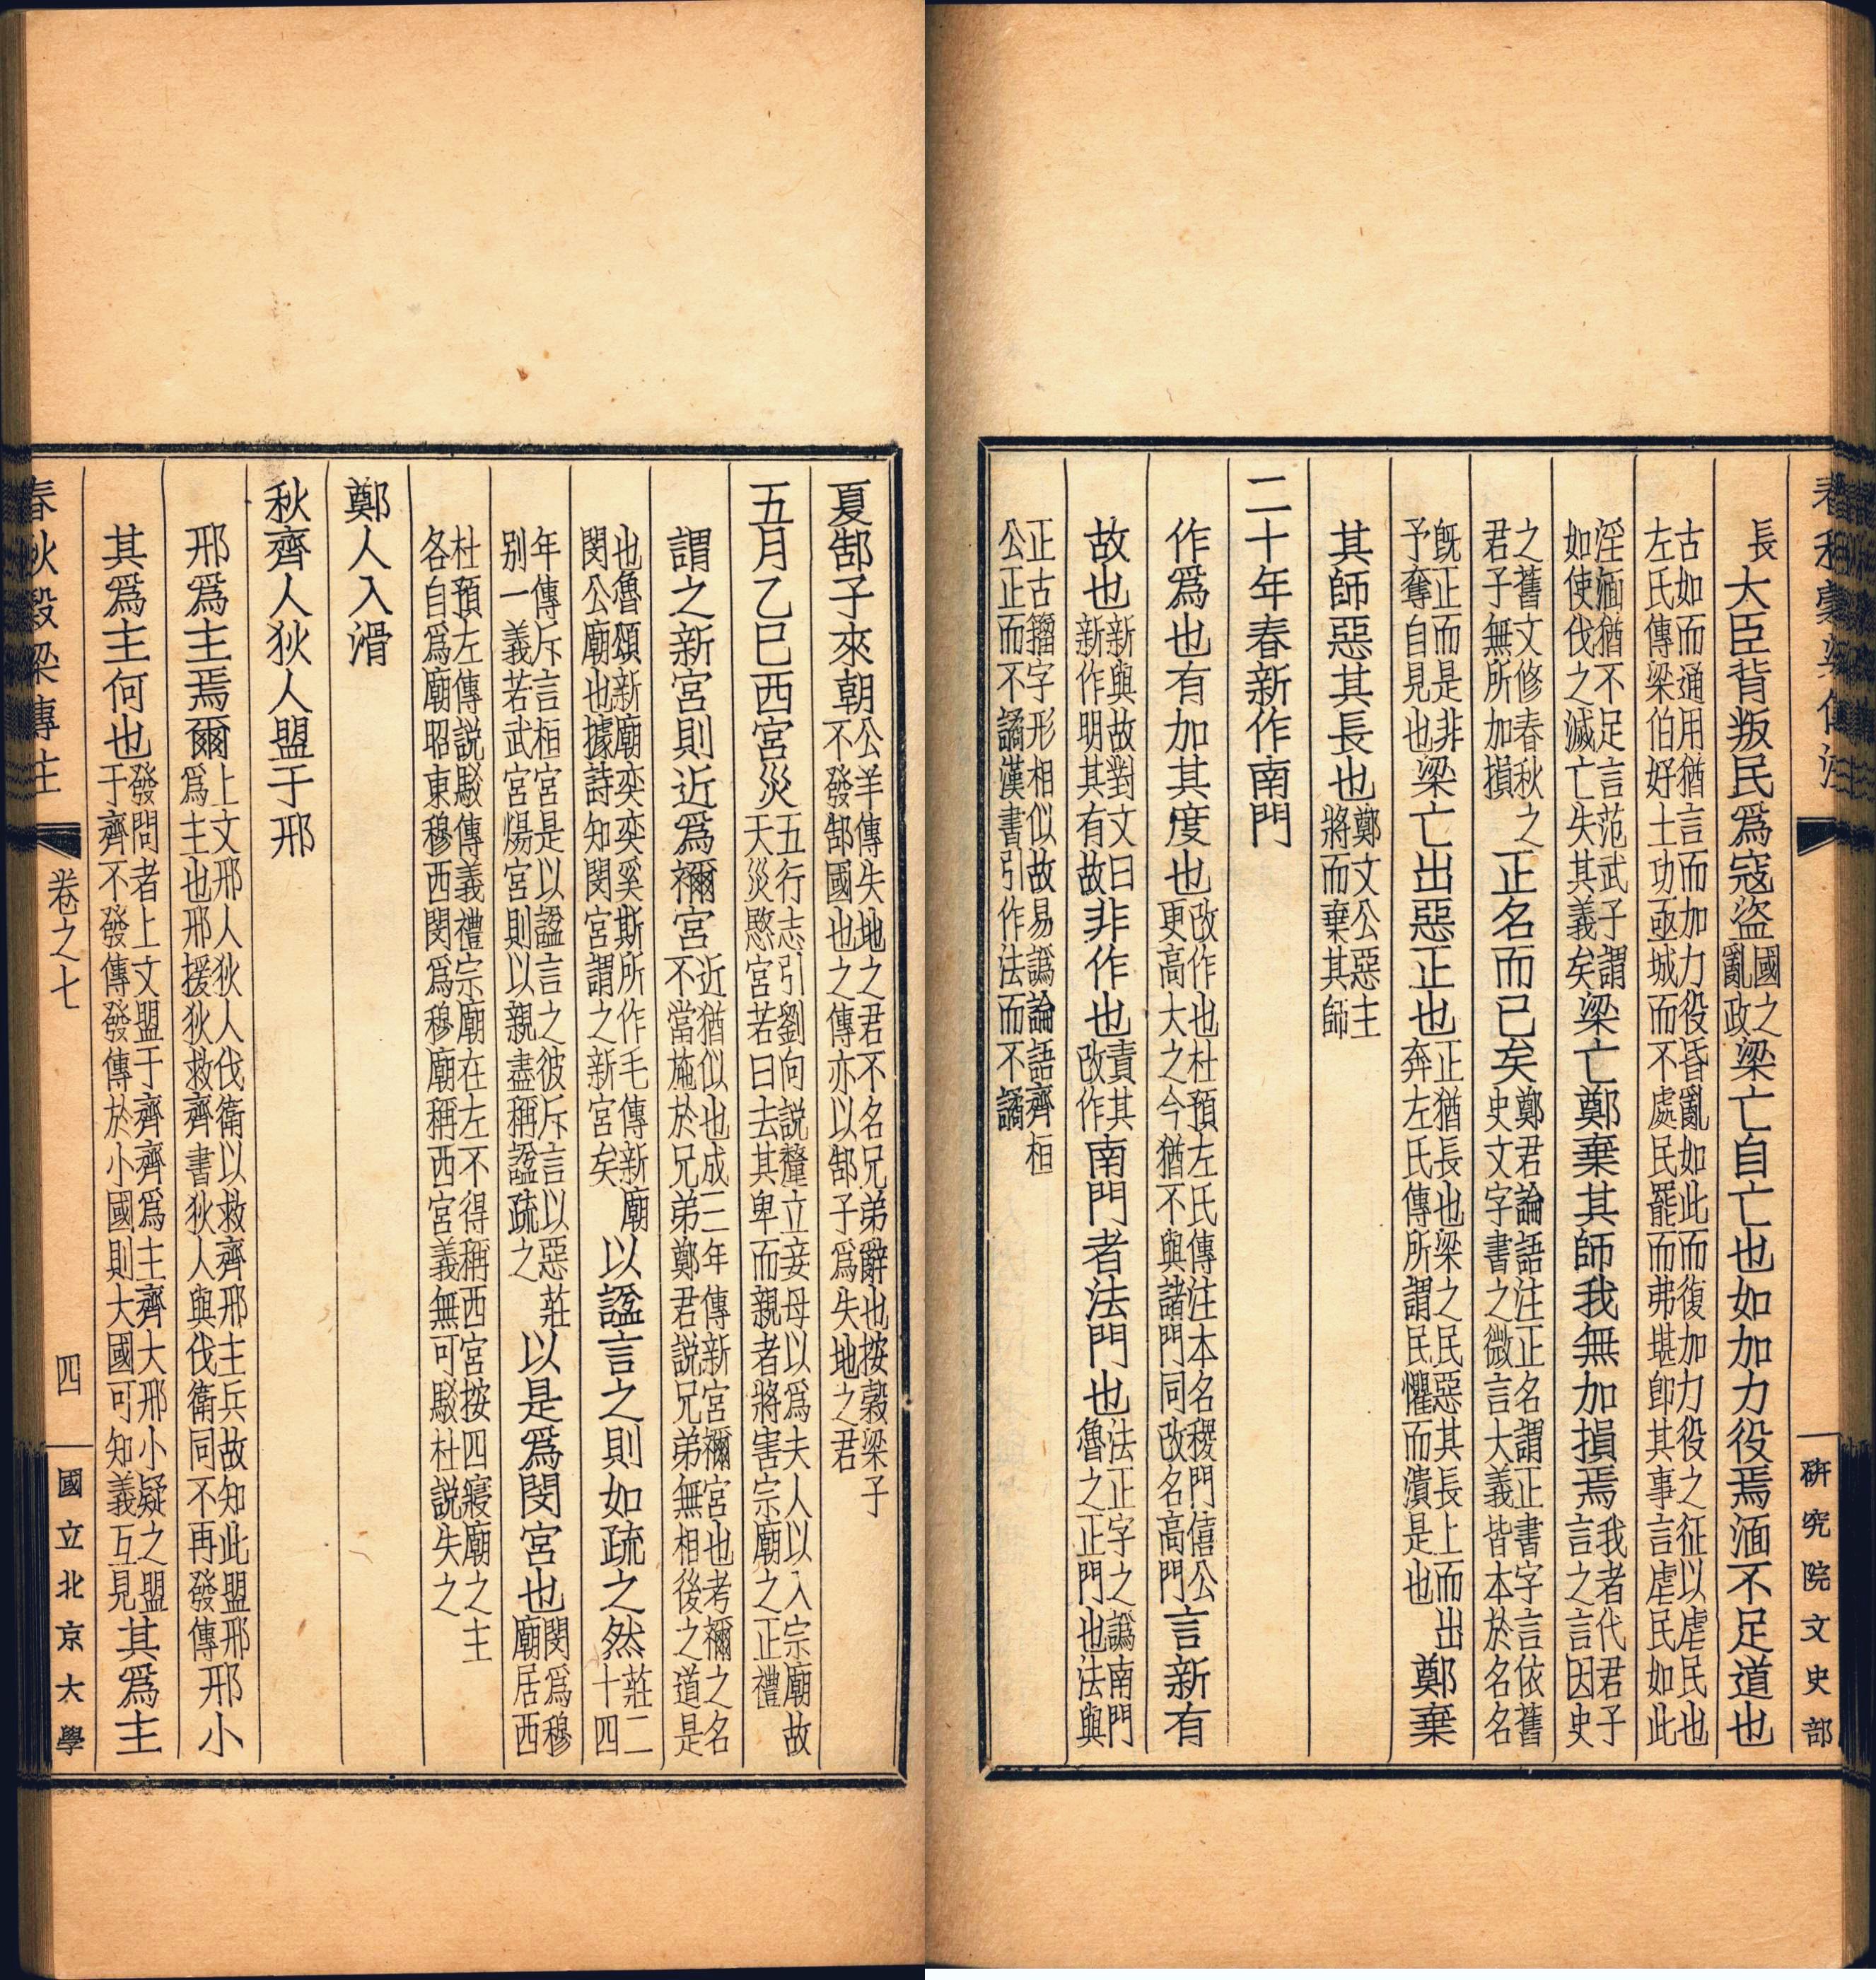 春秋穀梁傳注
研究院文史部
長大臣背叛民爲寇盜國之亂政梁亡自亡也如加力役焉湎不足道也
古如而通用猶言而加力役昏亂如此而復加力役之征以虐民也左氏傳梁伯好土功亟城而不處民罷而弗堪卽其事言虐民如此
淫湎猶不足言范武子謂如使伐之滅亡失其義矣梁亡鄭棄其師我無加損焉我者代君子言之言因史
之舊文修春秋之君子無所加損正名而已矣鄭君論語注正名謂正書字言依舊史文字書之微言大義皆本於名名
既正而是非予奪自見也梁亡出惡正也正猶長也梁之民惡其長上而出奔左氏傳所謂民懼而潰是也鄭棄
其師惡其長也鄭文公惡主將而棄其師
二十年春新作南門
作爲也有加其度也改作也杜預左氏傳注本名稷門僖公更高大之今猶不與諸門同改名高門言新有
故也新與故對文曰新作明其有故非作也責其改作南門者法門也法正字之譌南門魯之正門也法與
正古籀字形相似故易譌論語齊桓公正而不譎漢書引作法而不譎
夏郜子來朝公羊傳失地之君不名兄弟辭也按穀梁子不發郜國也之傳亦以郜子爲失地之君
五月乙巳西宮災五行志引劉向說釐立妾母以爲夫人以入宗廟故天災愍宮若曰去其卑而親者將害宗廟之正禮
謂之新宮則近爲禰宮近猶似也成三年傳新宮禰宮也考禰之名不當施於兄弟鄭君說兄弟無相後之道是
也魯頌新廟奕奕奚斯所作毛傳新廟閔公廟也據詩知閔宮謂之新宮矣以謚言之則如疏之然莊二十四
年傳斥言桓宮是以謚言之彼斥言以惡莊別一義若武宮煬宮則以親盡稱謚疏之以是爲閔宮也閔爲穆廟居西
杜預左傳說駁傳義禮宗廟在左不得稱西宮按四寢廟之主各自爲廟昭東穆西閔爲穆廟稱西宮義無可駁杜說失之
鄭人入滑
秋齊人狄人盟于邢
邢爲主焉爾上文邢人狄人伐衛以救齊邢主兵故知此盟邢爲主也邢援狄救齊書狄人與伐衛同不再發傳邢小
其爲主何也發問者上文盟于齊齊爲主齊大邢小疑之盟于齊不發傳發傳於小國則大國可知義互見其爲主
春秋穀梁傳注
卷之七
四
國立北京大學